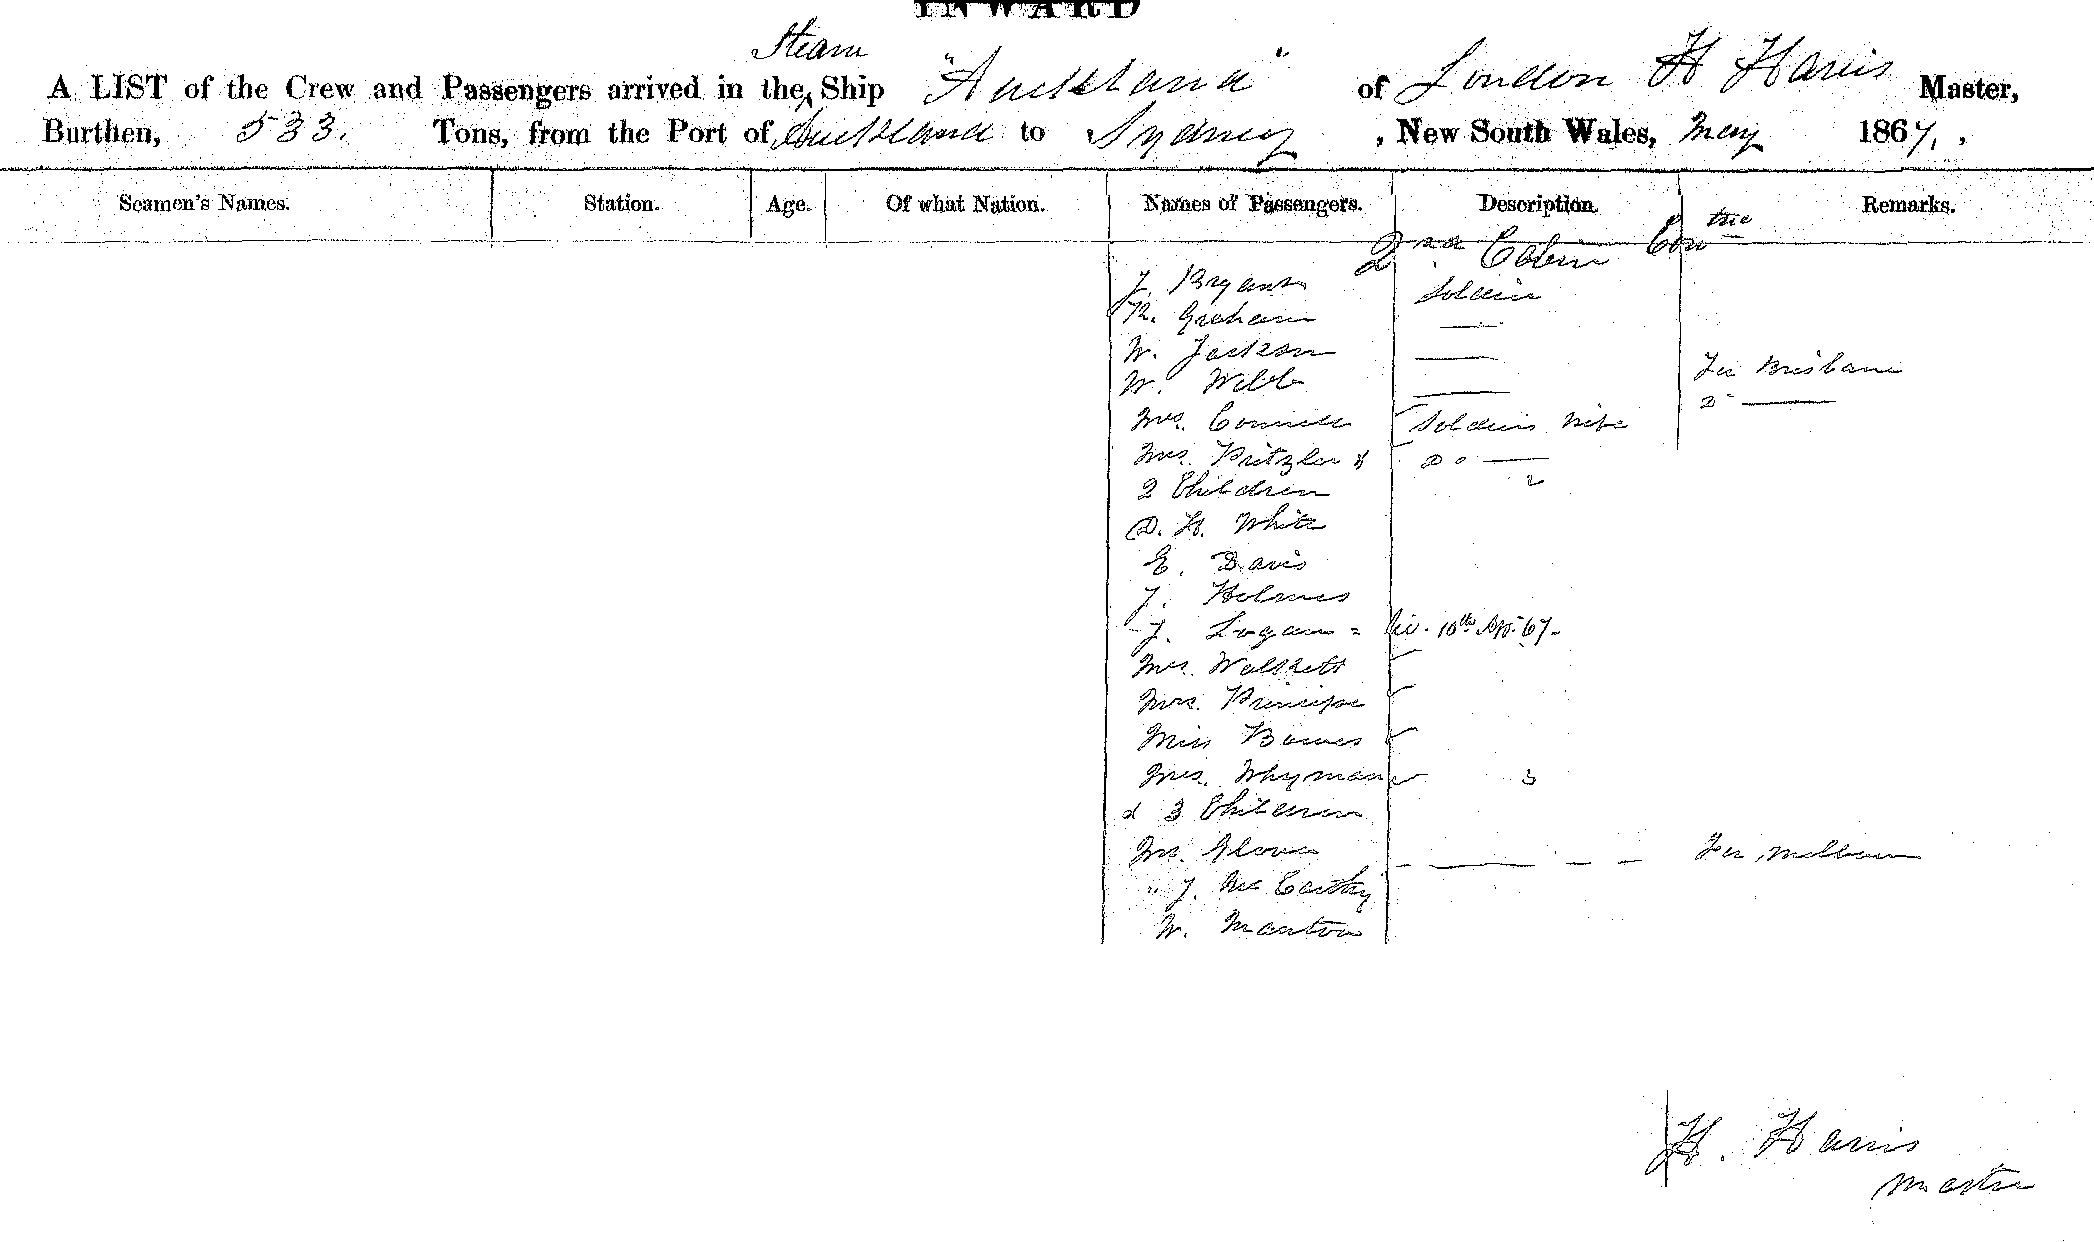 INWARD
Steam
A LIST of the Crew and Passengers arrived in the Ship "Auckland" of London H Harris Master,
Burthen, 533. Tons, from the Port of Auckland to Sydney, New South Wales, May 1867.
Seamen's Names. Station. Age. Of what Nation. Names of Passengers. Description. Remarks.
2nd Cabin Contue
J. Bryant Soldier
R. Graham —
W. Jackson —
W. Webb — For Brisbane
Mrs. Connell Soldiers Wife Do —
Mrs. Pritzler & Do —
2 Children 2
D. H. White
E. Davis
J. Holmes
J. Logan = 10th Apr. 67.
Mrs. Walkett
Mrs. Principe
Miss Bowes
Mrs. Whyman 3
& 3 Children
Mr. Glover — — — For Melbourn
" J. McCarthy
W. Manton
H. Harris
Master